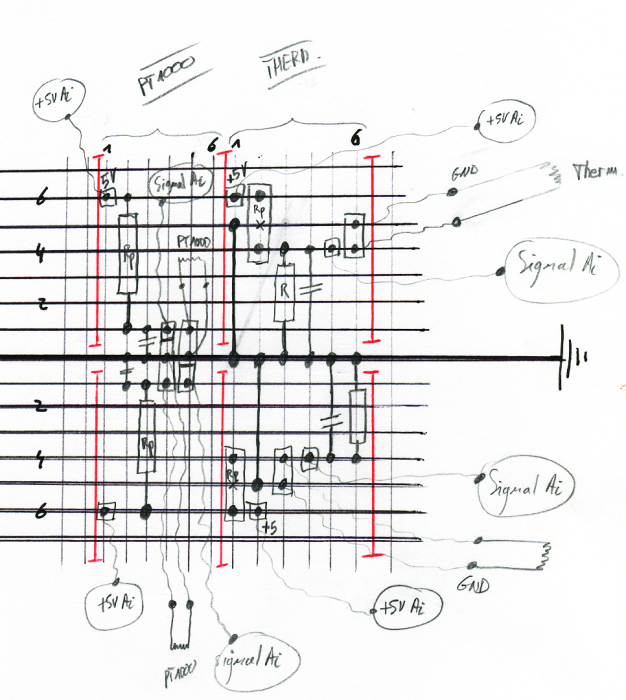 PT1000
THERM.
+5V Ai
+5V Ai
1
6
1
6
GND
Therm.
5V
Signal Ai
+5V
6
Rp
PT1000
Rp
4
R
Signal Ai
2
2
Rp
4
Rp
Signal Ai
6
+5
GND
+5V Ai
+5V Ai
PT1000
Signal Ai